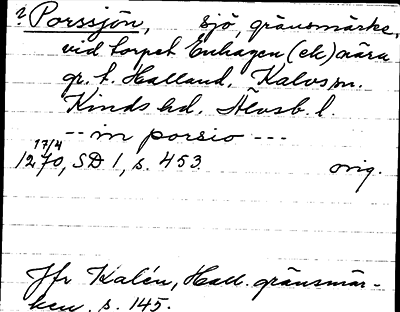 ? Porssjön, sjö, gränsmärke,
vid torpet Enhagen (ek) nära
gr. t. Halland. Kalvs sn.
Kinds hd. Älvsb. l.
-- in porsio ---
17/4
1270, SD 1, s. 453. orig.
Jfr Kalén, Hall. gränsmär-
ken, s. 145.